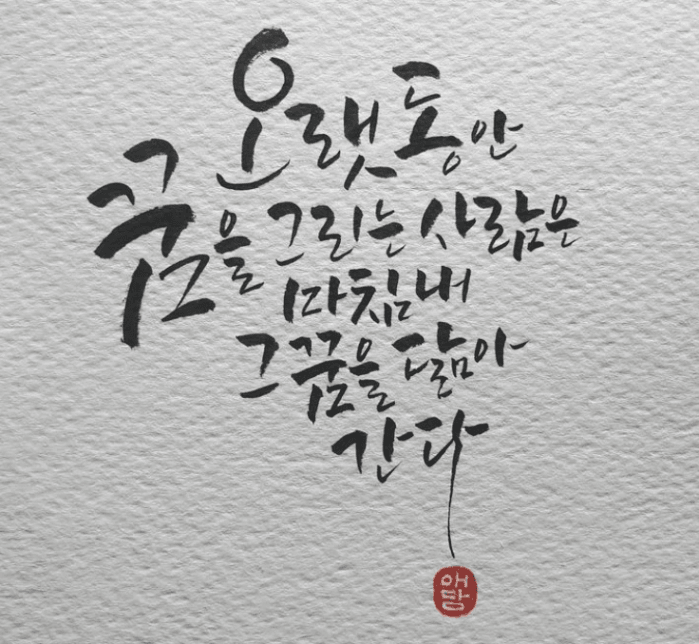 오랫동안
꿈을 그리는 사람은
마침내
그 꿈을 닮아
간다
애담